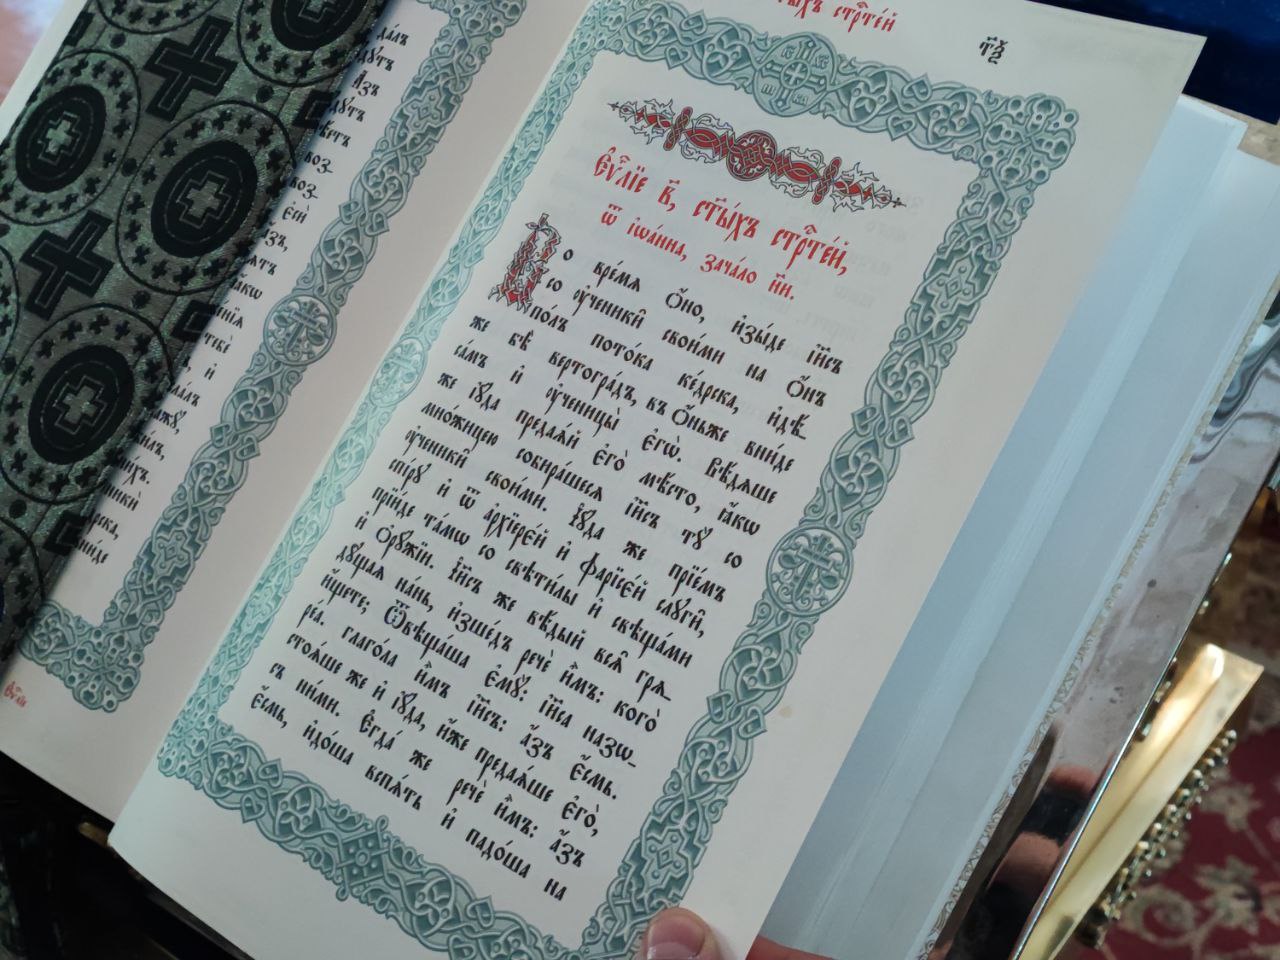 далъ
а҆́зъ
воз-
воз-
є҆́й
ꙗ҆́кѡ
и҆
є҆ѵⷢ҇лїе
ст҃ы́хъ стрⷭ҇те́й
т҃ѯ
Є҆ѵⷢ҇лїе в҃, ст҃ы́хъ стрⷭ҇те́й,
ѿ і҆ѡа́нна, зача́ло н҃и.
Во вре́мѧ ѻ҆́но, и҆зы́де і҆и҃съ
со ᲂу҆чєники̑ свои́ми на ѻ҆́нъ
по́лъ пото́ка ке́дрска, и҆дѣ́-
же бѣ̀ вертогра́дъ, въ ѻ҆́ньже вни́де
са́мъ и҆ ᲂу҆ченицы̀ є҆гѡ̀. Вѣ́дѧше
же і҆ꙋ́да предаѧ́й є҆го̀ мѣ́сто, ꙗ҆́кѡ
мно́жицею собира́шесѧ і҆и҃съ тꙋ̀ со
ᲂу҆чєники̑ свои́ми. І҆ꙋ́да же прїе́мь
спі́рꙋ и҆ ѿ а҆рхїерє́й и҆ фарїсє́й слꙋги̑,
прїи́де та́мѡ со свѣти́лы и҆ свѣща́ми
и҆ ѻ҆рꙋ́жїи. І҆и҃съ же вѣ́дый всѧ̑ грѧ-
дꙋ́щаѧ на́нь, и҆зше́дъ речѐ и҆̀мъ: кого̀
и҆́щете; Ѿвѣща́ша є҆мꙋ̀: і҆и҃са назѡ-
ре́а. глаго́ла и҆̀мъ і҆и҃съ: а҆́зъ є҆́смь.
стоѧ́ше же и҆ і҆ꙋ́да, и҆́же предаѧ́ше є҆го̀,
съ ни́ми. Є҆гда́ же речѐ и҆̀мъ: а҆́зъ
є҆́смь, и҆до́ша вспѧ́ть и҆ падо́ша на